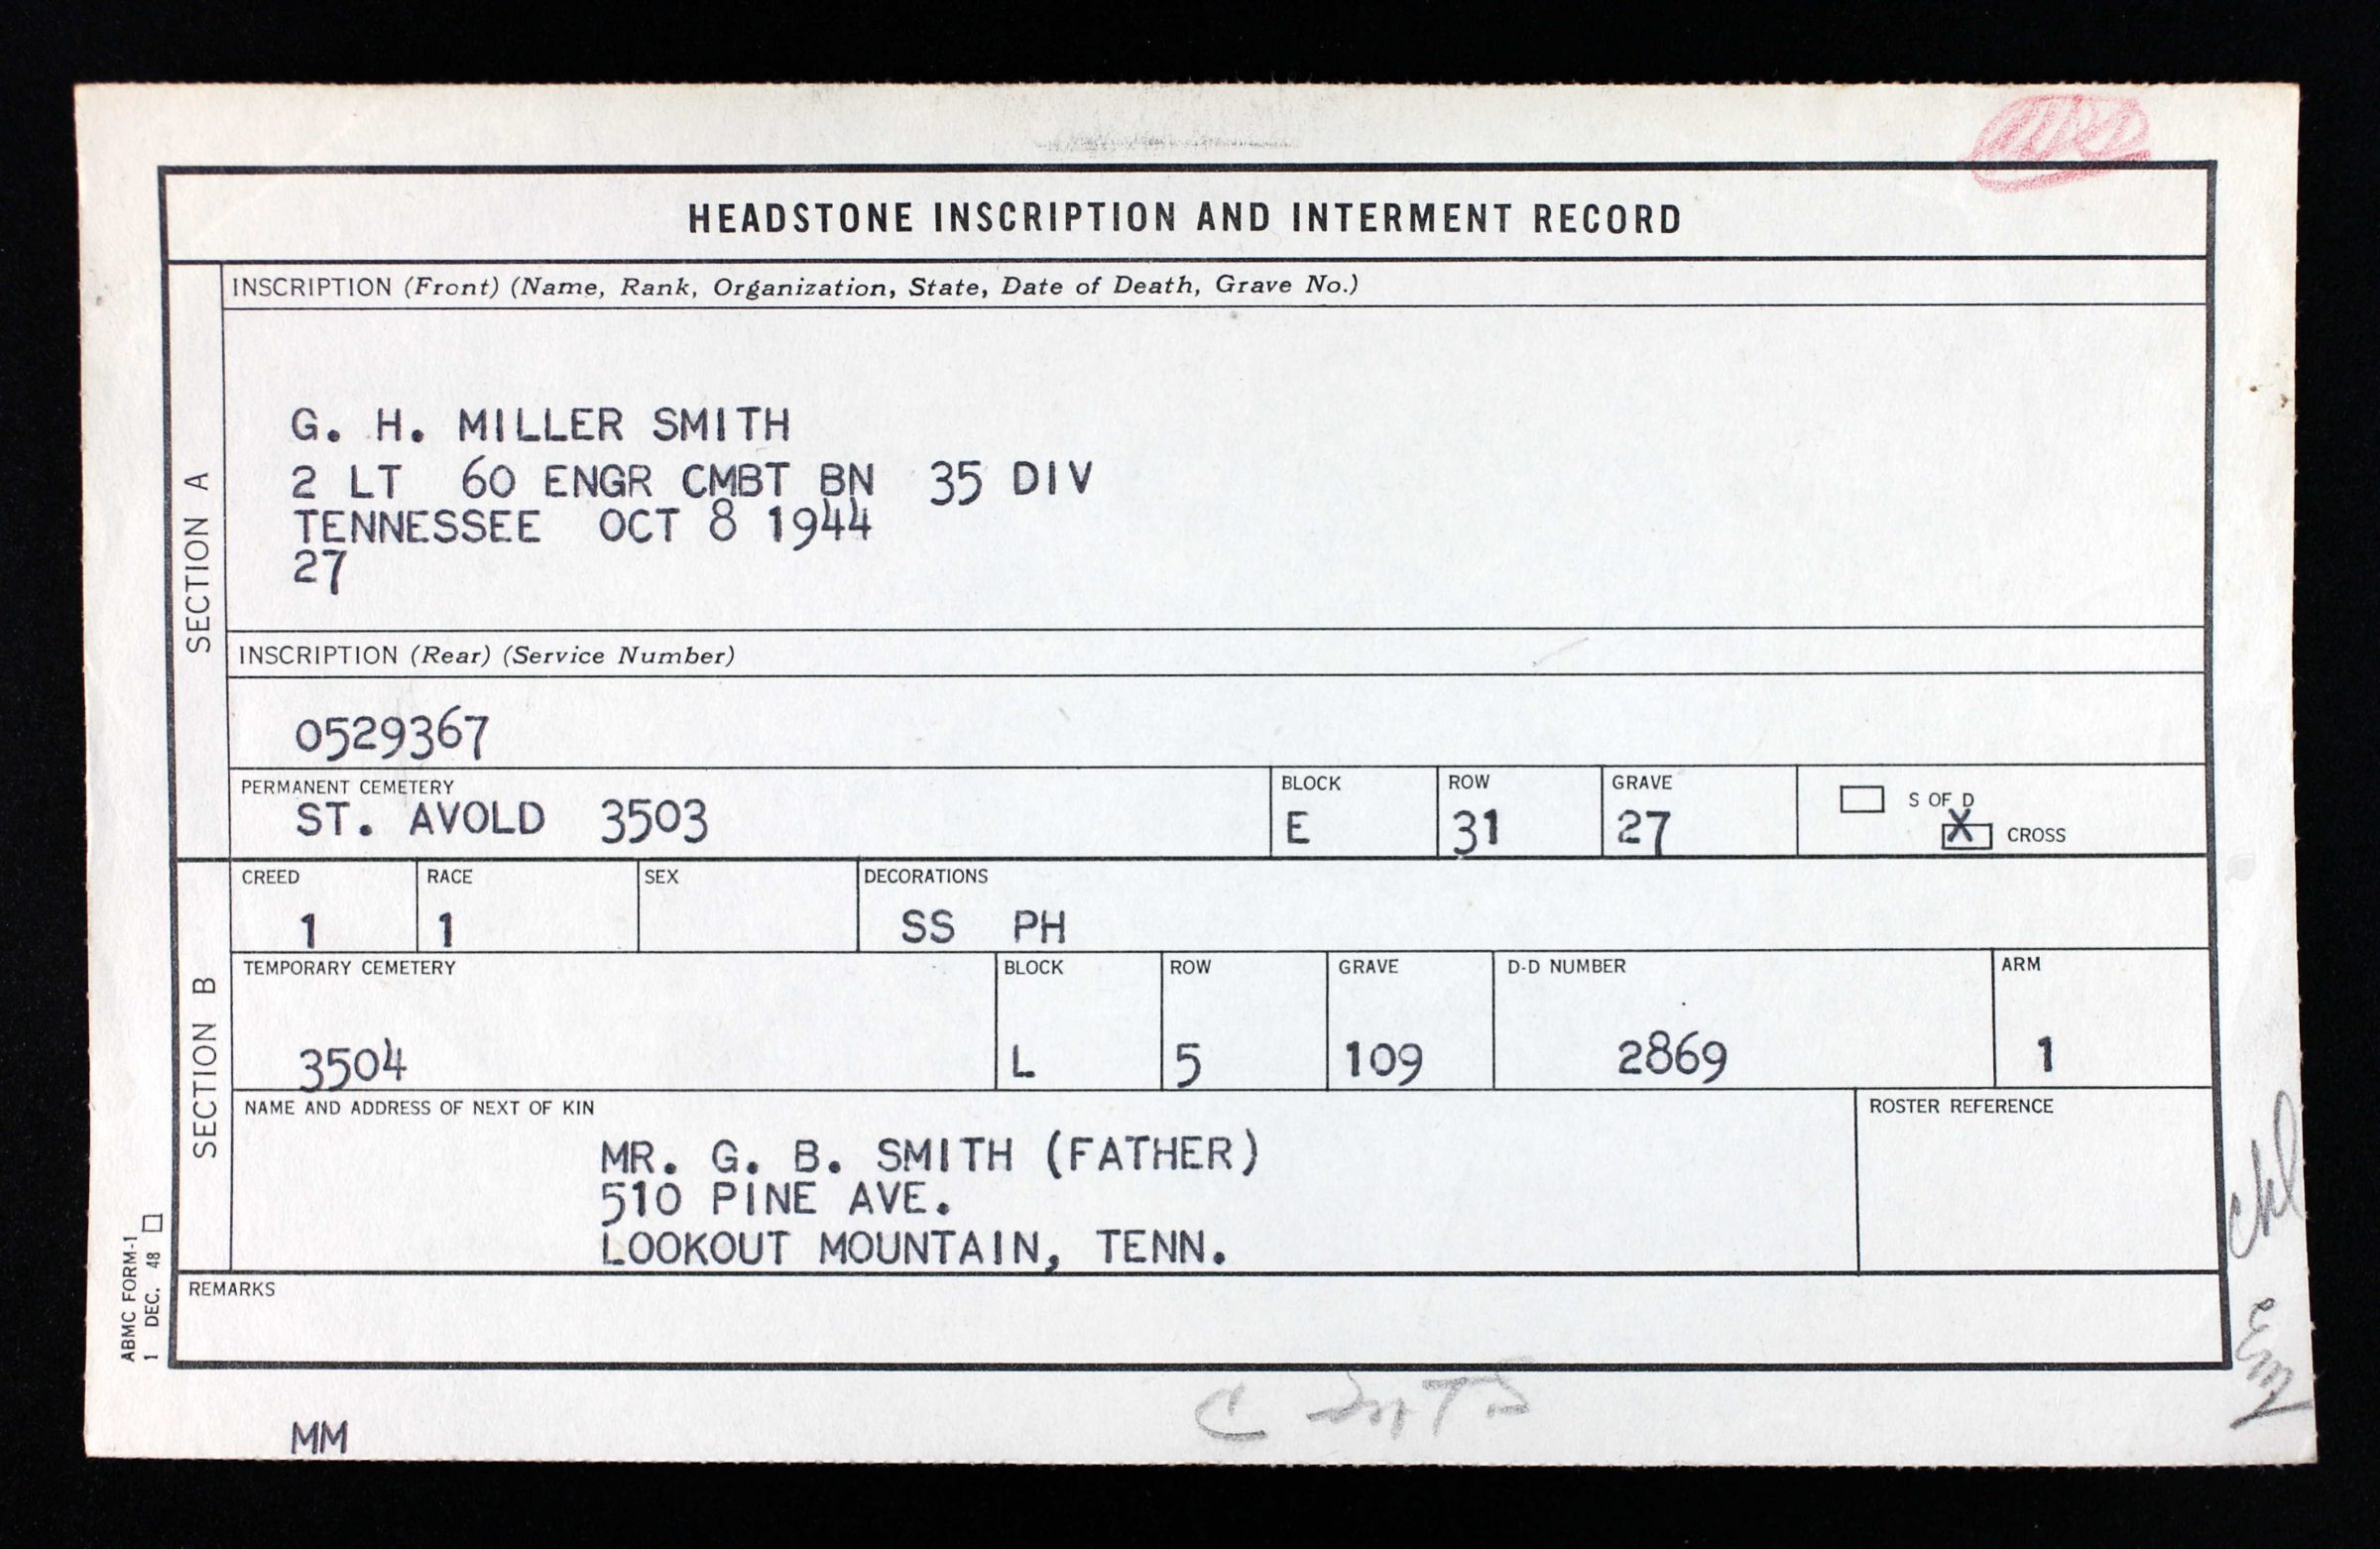 HEADSTONE INSCRIPTION AND INTERMENT RECORD
SECTION A
INSCRIPTION (Front) (Name, Rank, Organization, State, Date of Death, Grave No.)
G. H. MILLER SMITH
2 LT 60 ENGR CMBT BN 35 DIV
TENNESSEE OCT 8 1944
27
INSCRIPTION (Rear) (Service Number)
0529367
PERMANENT CEMETERY BLOCK ROW GRAVE
ST. AVOLD 3503 E 31 27
S OF D
X CROSS
SECTION B
CREED RACE SEX DECORATIONS
1 1 SS PH
TEMPORARY CEMETERY BLOCK ROW GRAVE D-D NUMBER ARM
3504 L 5 109 2869 1
NAME AND ADDRESS OF NEXT OF KIN ROSTER REFERENCE
MR. G. B. SMITH (FATHER)
510 PINE AVE.
LOOKOUT MOUNTAIN, TENN.
REMARKS
ABMC FORM-1
1 DEC. 48
MM